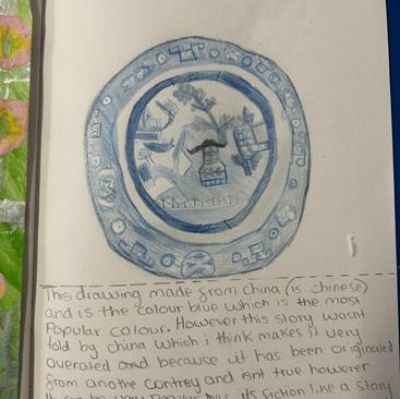 This drawing made from china (is chinese)
and is the colour blue which is the most
Popular colour. However this story wasnt
told by china which i think makes it very
overated and because it has been originated
from anothe contrey and isnt true however
it can be very its fiction like a story